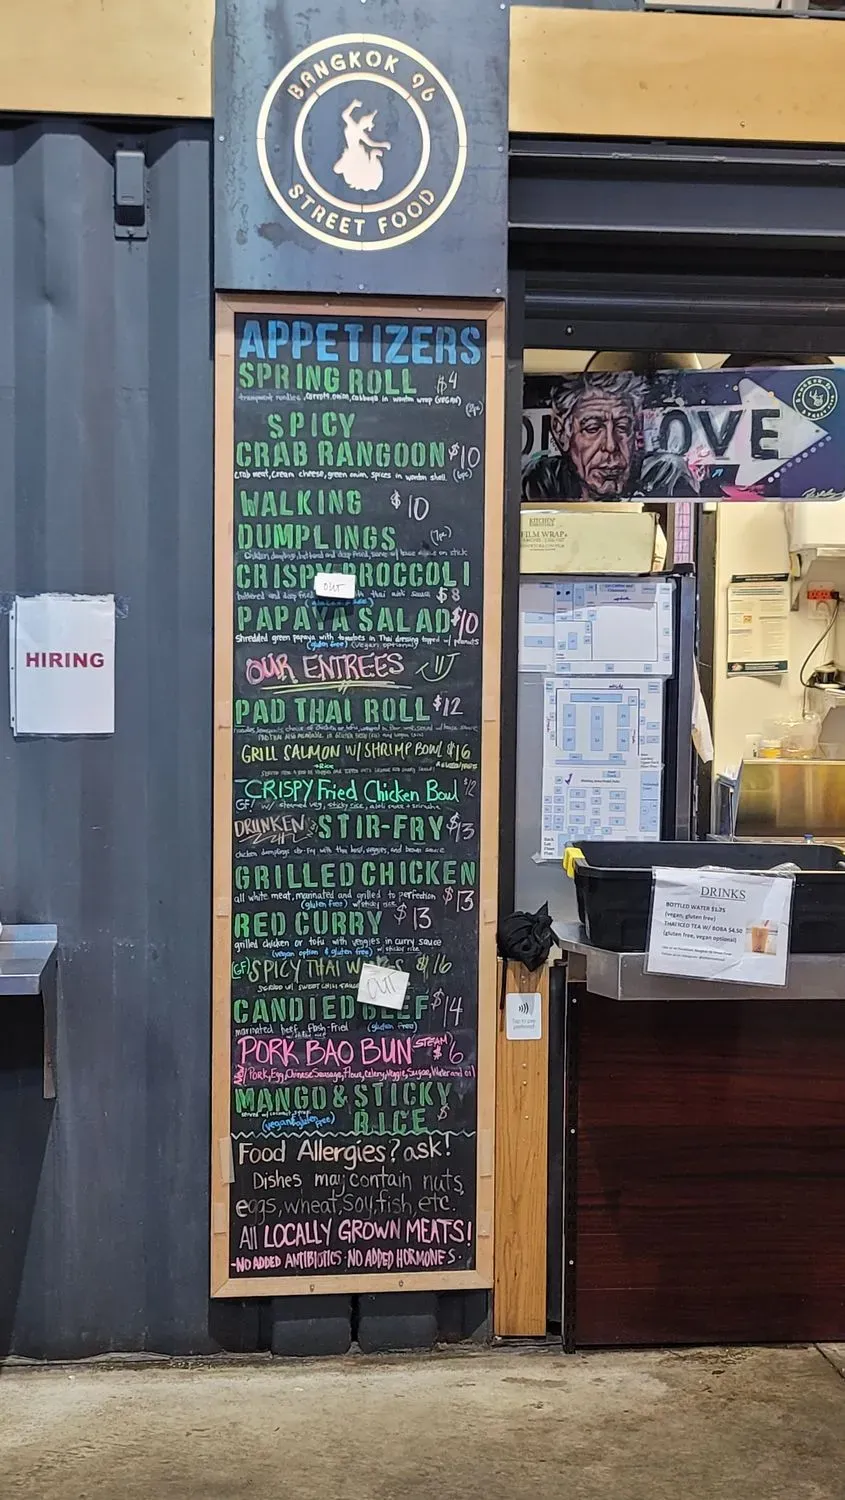 BANGKOK 96
STREET FOOD
APPETIZERS
SPRING ROLL $4
transparent noodles, carrots, onion, cabbage in wonton wrap (VEGAN)
(2pc)
SPICY
CRAB RANGOON $10
crab meat, cream cheese, green onion, spices in wonton shell. (6pc)
WALKING $10
DUMPLINGS (7pc)
Chicken dumplings, battered and deep fried, serve w/ house sauce on stick
CRISPY BROCCOLI
OUT
battered and deep fried thai aioli sauce $8
PAPAYA SALAD $10
Shredded green papaya with tomatoes in Thai dressing topped w/ peanuts
(gluten free) (vegan optional)
OUR ENTREES
PAD THAI ROLL $12
GRILL SALMON W/ SHRIMP BOWL $16
+Rice
CRISPY Fried Chicken Bowl $12
GF/ w/ steamed veg, sticky rice, aioli sauce + sriracha
DRUNKEN STIR-FRY $13
chicken dumplings stir-fry with thai basil, veggies, and brown sauce
GRILLED CHICKEN
all white meat, marinated and grilled to perfection $13
(gluten free) w/ sticky rice
RED CURRY $13
grilled chicken or tofu with veggies in curry sauce
(vegan option & gluten free) w/ sticky rice
(GF) SPICY THAI $16
SERVED W/ SWEET CHILI
OUT
CANDIED BEEF $14
marinated beef, flash-fried (gluten free)
PORK BAO BUN STEAM $6
w/ Pork, Egg, Chinese Sausage, Flour, Celery, Veggie, Sugar, Water and oil
MANGO & STICKY
RICE $
(vegan & gluten free)
Food Allergies? ask!
Dishes may contain nuts,
eggs, wheat, soy, fish, etc.
All LOCALLY GROWN MEATS!
-NO ADDED ANTIBIOTICS · NO ADDED HORMONES·
HIRING
OVE
BANGKOK 96
STREET FOOD
FILM WRAP
Tap to pay
preferred
DRINKS
BOTTLED WATER $1.75
(vegan, gluten free)
THAI ICED TEA W/ BOBA $4.50
(gluten free, vegan optional)